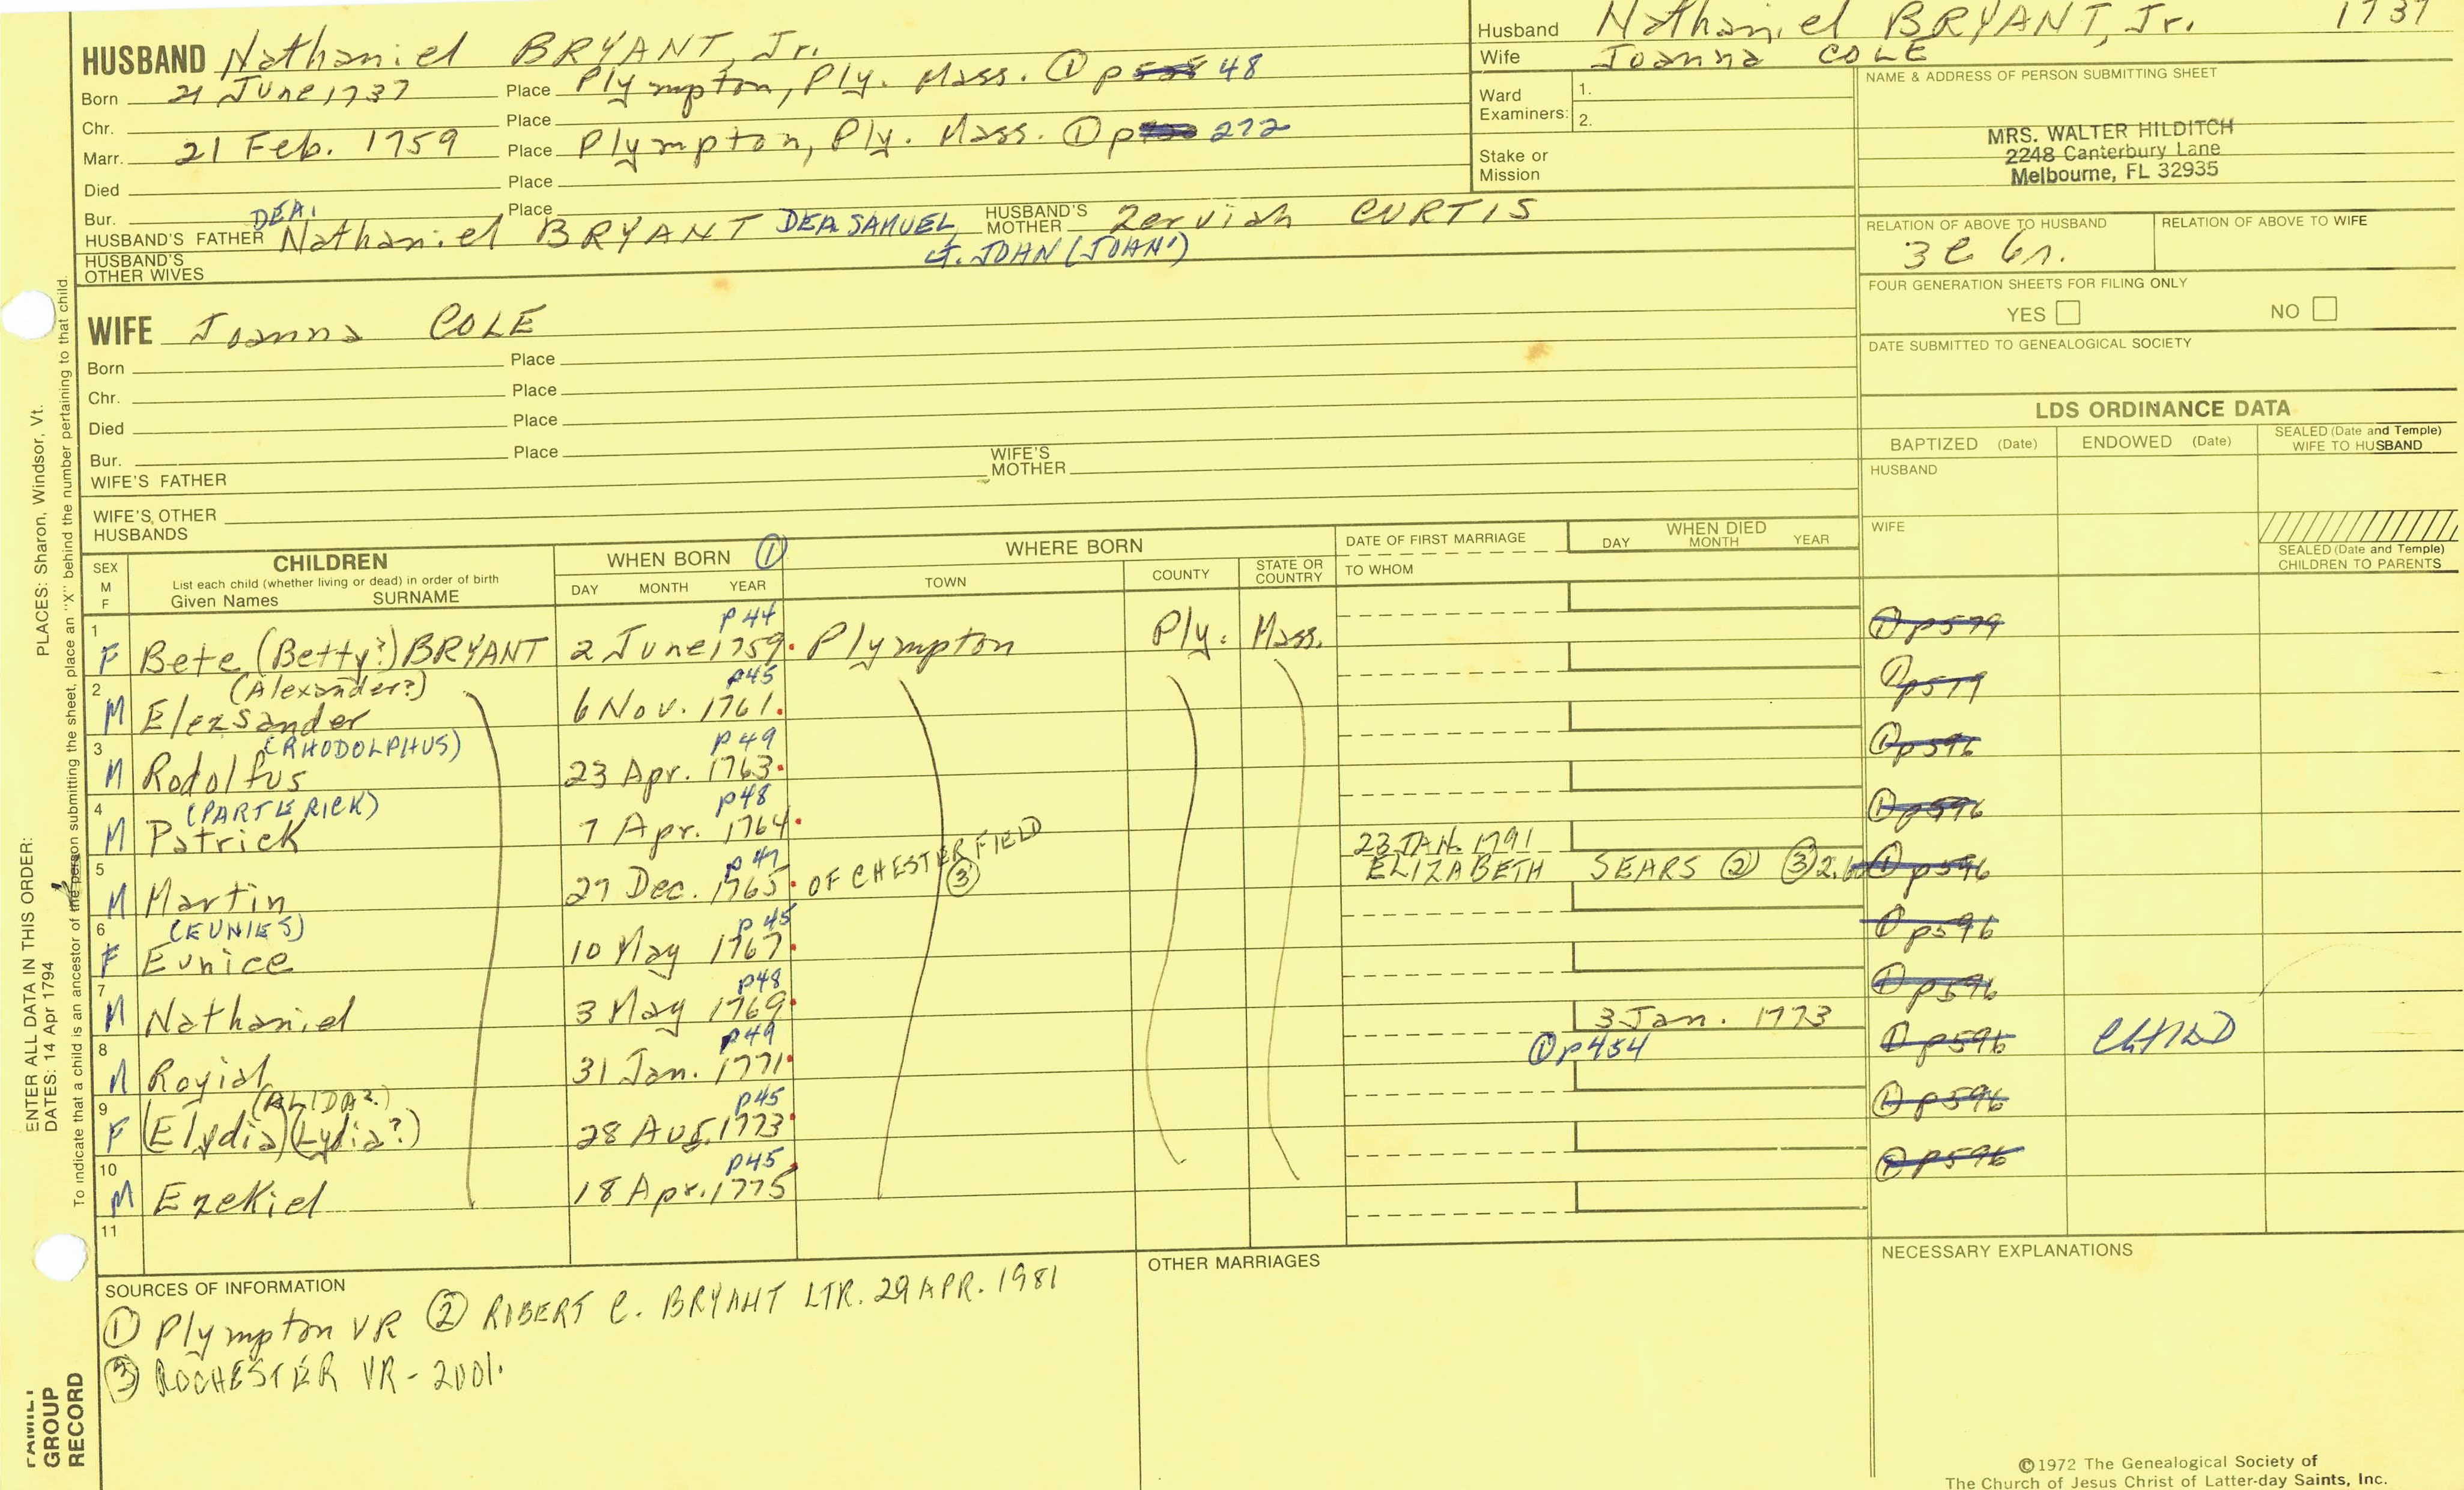 HUSBAND Nathaniel BRYANT, Jr.
Born 21 June 1737 Place Plympton, Ply. Mass. ① p 48
Chr. Place
Marr. 21 Feb. 1759 Place Plympton, Ply. Mass. ① p 272
Died Place
Bur. Place
DEA.
HUSBAND'S FATHER Nathaniel BRYANT DEA. SAMUEL, HUSBAND'S MOTHER Zerviah CURTIS
HUSBAND'S OTHER WIVES
JOHN (JOHN')
Husband Nathaniel BRYANT, Jr. 1737
Wife Joanna COLE
Ward Examiners: 1.
2.
Stake or Mission
NAME & ADDRESS OF PERSON SUBMITTING SHEET
MRS. WALTER HILDITCH
2248 Canterbury Lane
Melbourne, FL 32935
RELATION OF ABOVE TO HUSBAND RELATION OF ABOVE TO WIFE
3 C 6r.
FOUR GENERATION SHEETS FOR FILING ONLY
YES NO
DATE SUBMITTED TO GENEALOGICAL SOCIETY
WIFE Joanna COLE
Born Place
Chr. Place
Died Place
Bur. Place
WIFE'S FATHER WIFE'S MOTHER
WIFE'S OTHER HUSBANDS
LDS ORDINANCE DATA
BAPTIZED (Date) ENDOWED (Date) SEALED (Date and Temple) WIFE TO HUSBAND
HUSBAND
WIFE
SEALED (Date and Temple) CHILDREN TO PARENTS
SEX M F
CHILDREN
List each child (whether living or dead) in order of birth
Given Names SURNAME
WHEN BORN ①
DAY MONTH YEAR
WHERE BORN
TOWN COUNTY STATE OR COUNTRY
DATE OF FIRST MARRIAGE
TO WHOM
WHEN DIED
DAY MONTH YEAR
p44
1 F Bete (Betty?) BRYANT 2 June 1759. Plympton Ply. Mass. ① p579
(Alexander?) p45
2 M Elezsander 6 Nov. 1761. ① p579
(RHODOLPHUS) p49
3 M Rodolfus 23 Apr. 1763. ① p596
(PARTERICK) p48
4 M Patrick 7 Apr. 1764. ① p596
p47 23 JAN. 1791
5 M Martin 27 Dec. 1765. OF CHESTERFIELD ③ ELIZABETH SEARS ② ③ ① p596
(EUNIES) p45
6 F Eunice 10 May 1767. ① p596
p48
7 M Nathaniel 3 May 1769. ① p596
p49 3 Jan. 1773
8 M Royial 31 Jan. 1771. ① p454 ① p596 CHILD
(ALIDA?) p45
9 F (Elydia) (Lydia?) 28 Aug. 1773 ① p596
p45
10 M Ezekiel 18 Apr. 1775 ① p596
11
SOURCES OF INFORMATION
① Plympton VR ② ROBERT C. BRYANT LTR. 29 APR. 1981
③ ROCHESTER VR - 2001.
OTHER MARRIAGES
NECESSARY EXPLANATIONS
©1972 The Genealogical Society of
The Church of Jesus Christ of Latter-day Saints, Inc.
ENTER ALL DATA IN THIS ORDER:
DATES: 14 Apr 1794 PLACES: Sharon, Windsor, Vt.
To indicate that a child is an ancestor of the person submitting the sheet, place an "X" behind the number pertaining to that child.
FAMILY
GROUP
RECORD